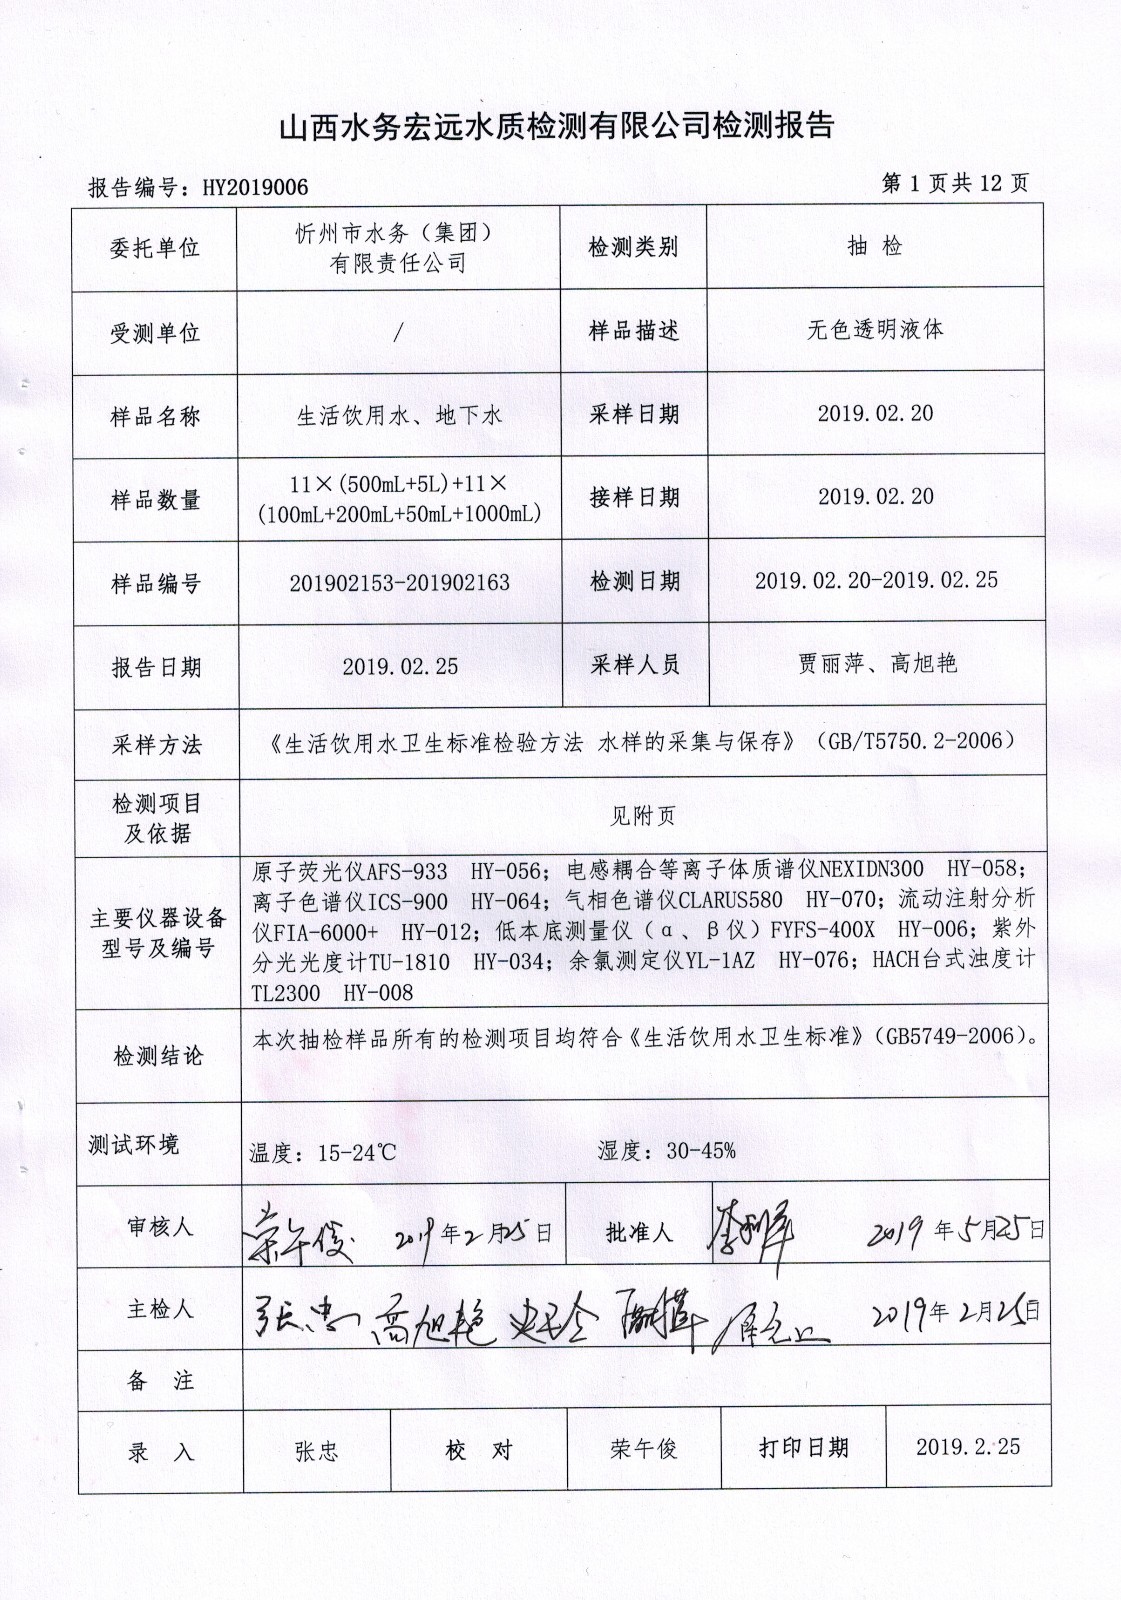 山西水务宏远水质检测有限公司检测报告
报告编号：HY2019006
第 1 页共 12 页
委托单位
忻州市水务（集团）
有限责任公司
检测类别
抽 检
受测单位
/
样品描述
无色透明液体
样品名称
生活饮用水、地下水
采样日期
2019.02.20
样品数量
11×(500mL+5L)+11×
(100mL+200mL+50mL+1000mL)
接样日期
2019.02.20
样品编号
201902153-201902163
检测日期
2019.02.20-2019.02.25
报告日期
2019.02.25
采样人员
贾丽萍、高旭艳
采样方法
《生活饮用水卫生标准检验方法 水样的采集与保存》（GB/T5750.2-2006）
检测项目
及依据
见附页
主要仪器设备
型号及编号
原子荧光仪AFS-933 HY-056；电感耦合等离子体质谱仪NEXIDN300 HY-058；
离子色谱仪ICS-900 HY-064；气相色谱仪CLARUS580 HY-070；流动注射分析
仪FIA-6000+ HY-012；低本底测量仪（α、β仪）FYFS-400X HY-006；紫外
分光光度计TU-1810 HY-034；余氯测定仪YL-1AZ HY-076；HACH台式浊度计
TL2300 HY-008
检测结论
本次抽检样品所有的检测项目均符合《生活饮用水卫生标准》（GB5749-2006）。
测试环境
温度：15-24℃
湿度：30-45%
审核人
荣午俊 2019年2月25日
批准人
2019年5月25日
主检人
张忠 高旭艳
2019年2月25日
备 注
录 入
张忠
校 对
荣午俊
打印日期
2019.2.25